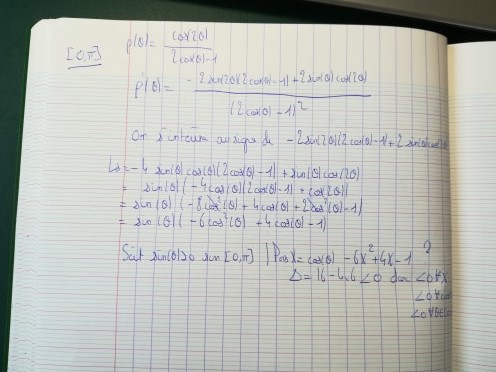 [0,π] p(θ) = cos(2θ) / 2cos(θ)-1
p'(θ) = -2sin(2θ)(2cos(θ)-1)+2sin(θ)cos(2θ) / (2cos(θ)-1)²
On s'intéresse au signe de -2sin(2θ)(2cos(θ)-1)+2sin(θ)cos(2θ)
↳ = -4 sin(θ)cos(θ)(2cos(θ)-1)+sin(θ)cos(2θ)
= sin(θ)(-4cos(θ)(2cos(θ)-1)+cos(2θ))
= sin(θ)(-8cos²(θ)+4cos(θ)+2cos²(θ)-1)
= sin(θ)(-6cos²(θ)+4cos(θ)-1)
Soit sin(θ)≥0 sur [0,π] | Pos X=cos(θ) -6X²+4X-1 ?
Δ=16-4.6<0 donc <0 ∀X
<0 ∀cos
<0 ∀θ∈